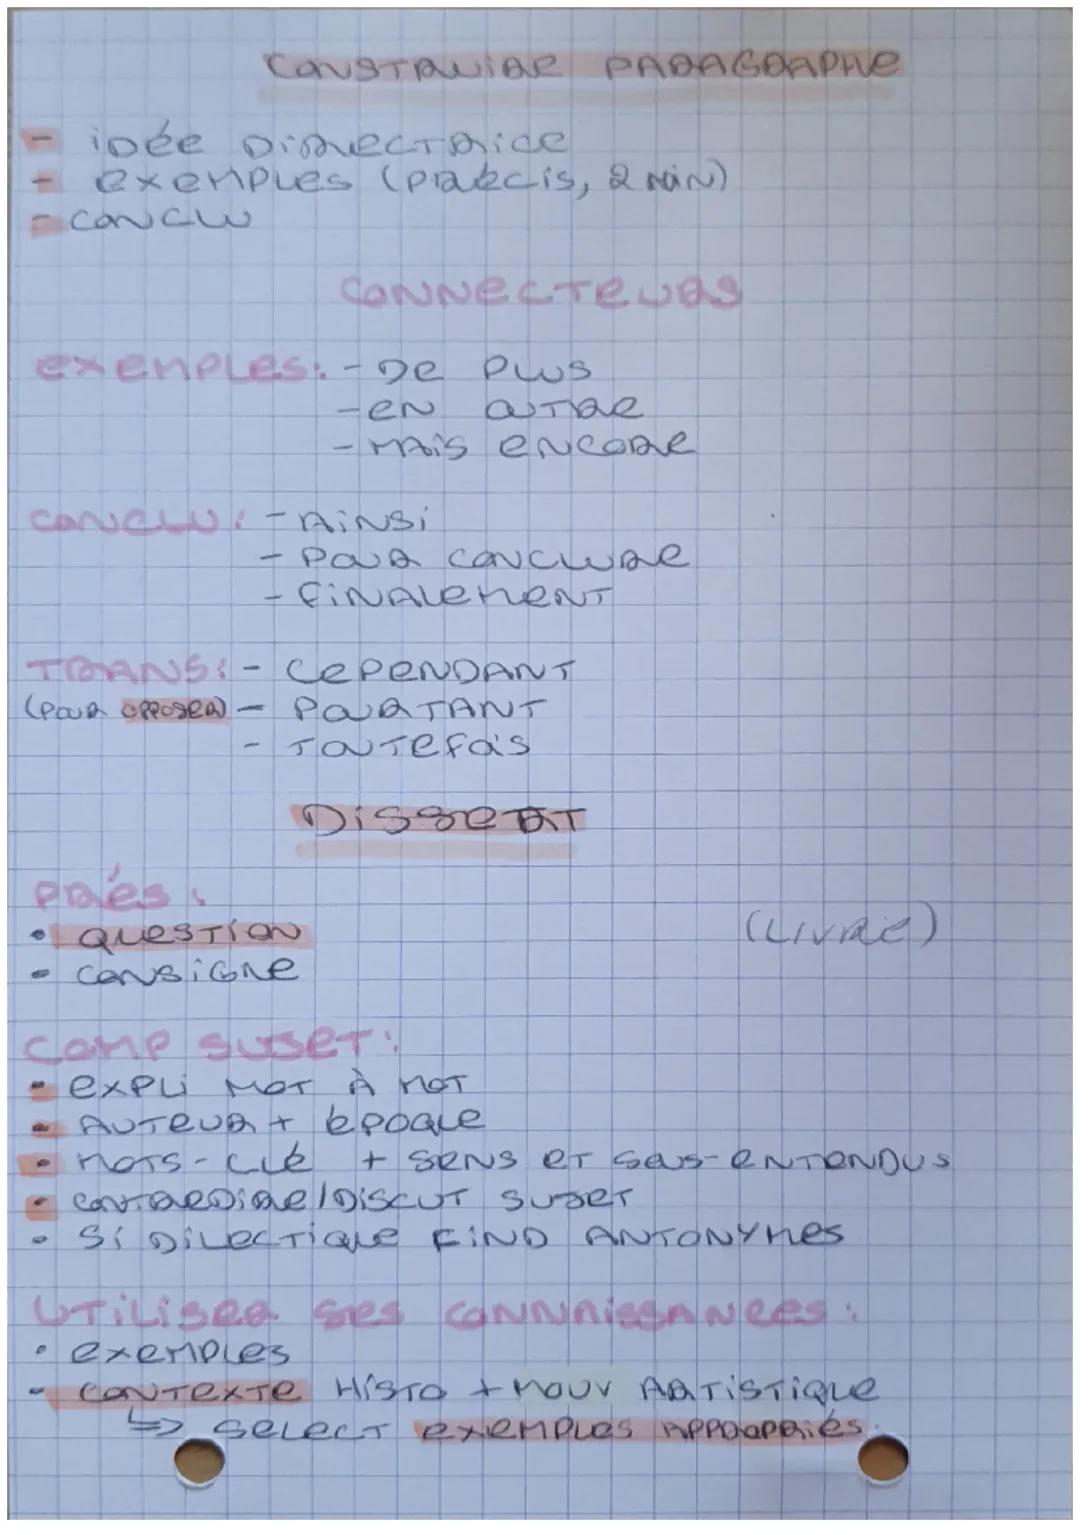 CONSTRUIRE PARAGRAPHE
- iDée DiRecTRice
- exemples (précis, 2 min)
- CONCLU
CONNECTEURS
exemples: - De Plus
- en outre
- Mais encore
CONCLU: - Ainsi
- Pour conclure
- Finalement
TRANS: - Cependant
(pour opposer) - Pourtant
- Toutefois
Dissert
Prés:
• question (Livre)
• consigne
Comp sujet:
• expli mot À mot
• Auteur + époque
• mots-clé + sens et sous-entendus
• contredire/Discut sujet
• Si Dilectique find antonymes
Utiliser ses connaissances:
• exemples
• contexte Histo + mouv Artistique
↳ select exemples appropriés.